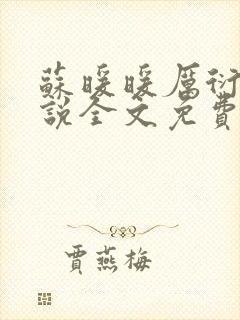 蘇暖暖厲衍
說全文免費
賈燕梅